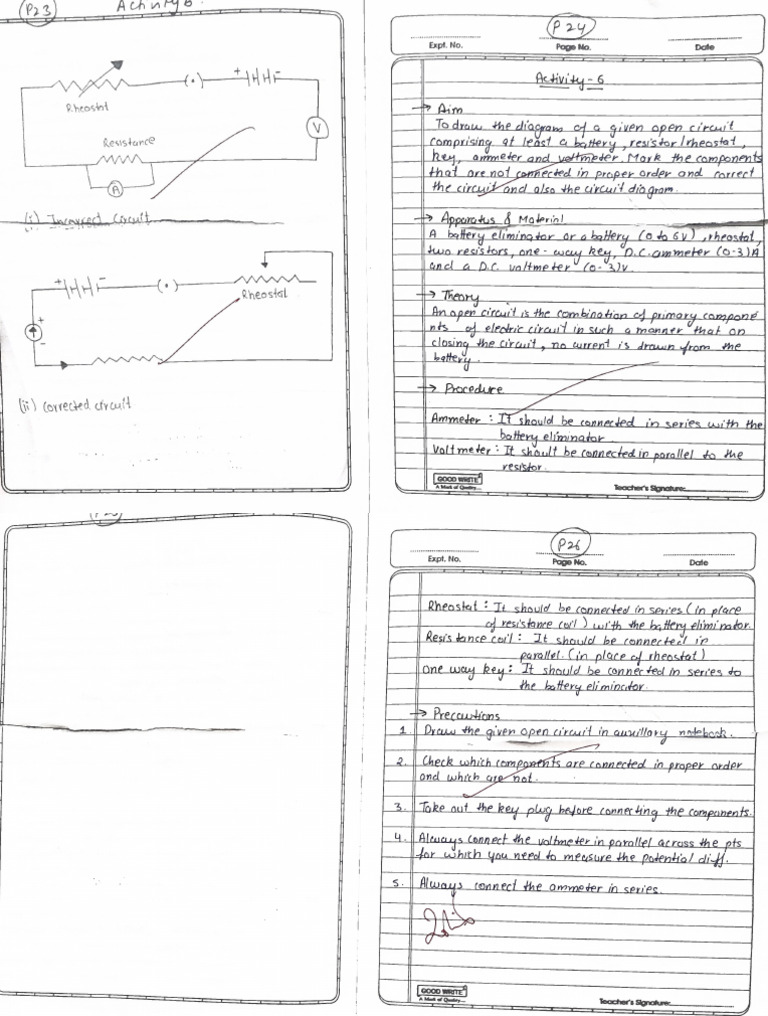 P23
Activity 6
Rheostat
(•)
+ -
V
Resistance
A
(i) Incorrect Circuit
+ -
(•)
Rheostat
+
-
(ii) corrected circuit
P24
Expt. No.
Page No.
Date
Activity - 6
→ Aim
To draw the diagram of a given open circuit
comprising at least a battery, resistor/rheostat,
key, ammeter and voltmeter. Mark the components
that are not connected in proper order and correct
the circuit and also the circuit diagram.
→ Apparatus & Material
A battery eliminator or a battery (0 to 6V), rheostat,
two resistors, one-way key, D.C. ammeter (0-3)A
and a D.C. voltmeter (0-3)V.
→ Theory
An open circuit is the combination of primary compone
nts of electric circuit in such a manner that on
closing the circuit, no current is drawn from the
battery.
→ Procedure
Ammeter : It should be connected in series with the
battery eliminator
Voltmeter : It shoult be connected in parallel to the
resistor.
GOOD WRITE
A Mark of Quality...
Teacher's Signature:
P26
Expt. No.
Page No.
Date
Rheostat : It should be connected in series (in place
of resistance coil) with the battery eliminator.
Resistance coil : It should be connected in
parallel. (in place of rheostat)
One way key : It should be connected in series to
the battery eliminator.
→ Precautions
1. Draw the given open circuit in auxillary notebook.
2. Check which components are connected in proper order
and which are not.
3. Take out the key plug before connecting the components.
4. Always connect the voltmeter in parallel across the pts
for which you need to measure the potential diff.
5. Always connect the ammeter in series.
GOOD WRITE
A Mark of Quality...
Teacher's Signature: